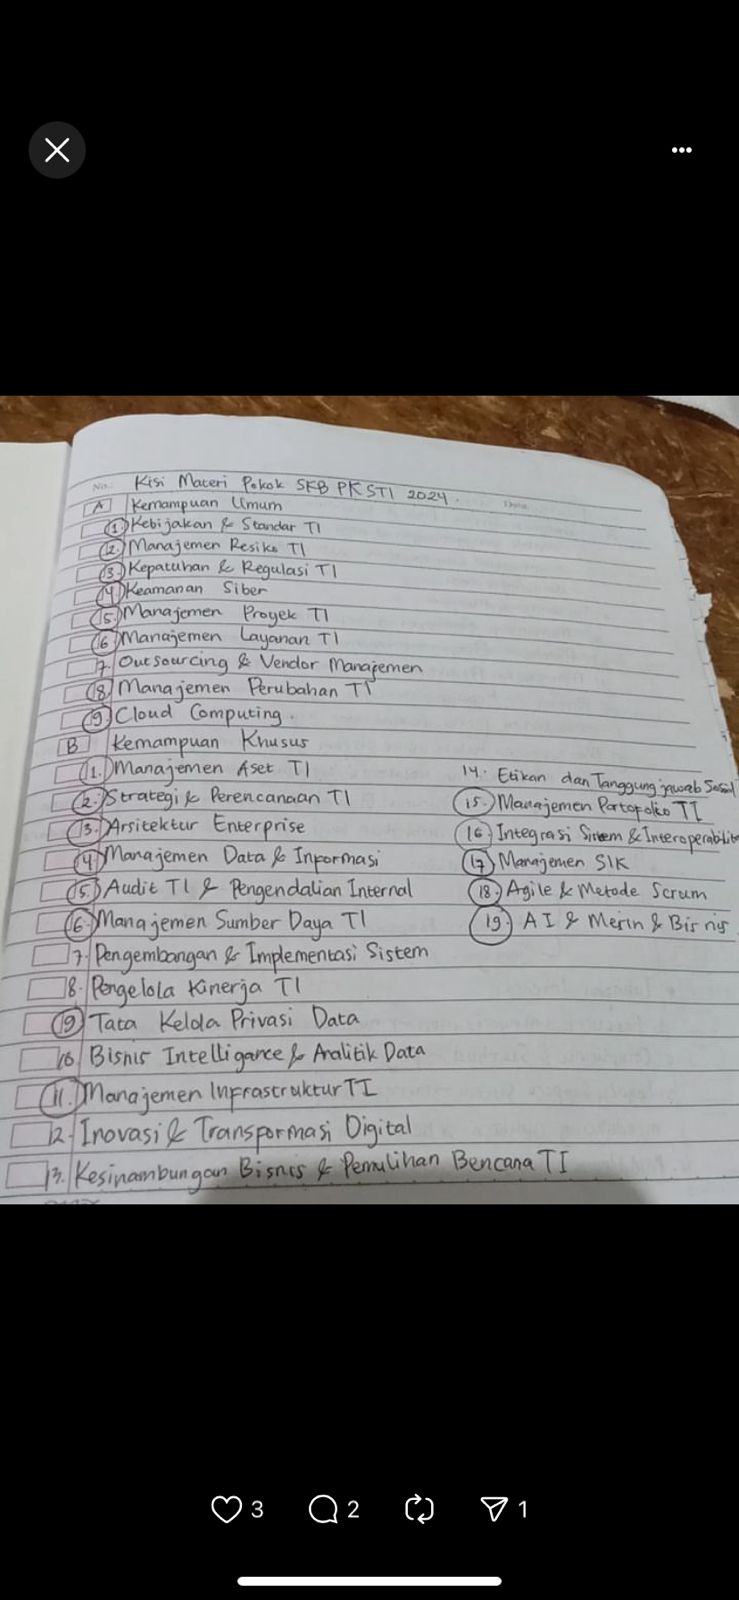 No.
Kisi Materi Pokok SKB PK STI 2024.
A Kemampuan Umum
1. Kebijakan & Standar TI
2. Manajemen Resiko TI
3. Kepatuhan & Regulasi TI
4. Keamanan Siber
5. Manajemen Proyek TI
6. Manajemen Layanan TI
7. Outsourcing & Vendor Manajemen
8. Manajemen Perubahan TI
9. Cloud Computing.
B Kemampuan Khusus
1. Manajemen Aset TI
2. Strategi & Perencanaan TI
3. Arsitektur Enterprise
4. Manajemen Data & Informasi
5. Audit TI & Pengendalian Internal
6. Manajemen Sumber Daya TI
7. Pengembangan & Implementasi Sistem
8. Pengelola Kinerja TI
9. Tata Kelola Privasi Data
10. Bisnis Intelligance & Analitik Data
11. Manajemen Infrastruktur TI
12. Inovasi & Transformasi Digital
13. Kesinambungan Bisnis & Pemulihan Bencana TI
14. Etikan dan Tanggung jawab Sosial
15. Manajemen Portofolio TI
16. Integrasi Sistem & Interoperabilit
17. Manajemen SIK
18. Agile & Metode Scrum
19. AI & Mesin & Bisnis
3
2
1